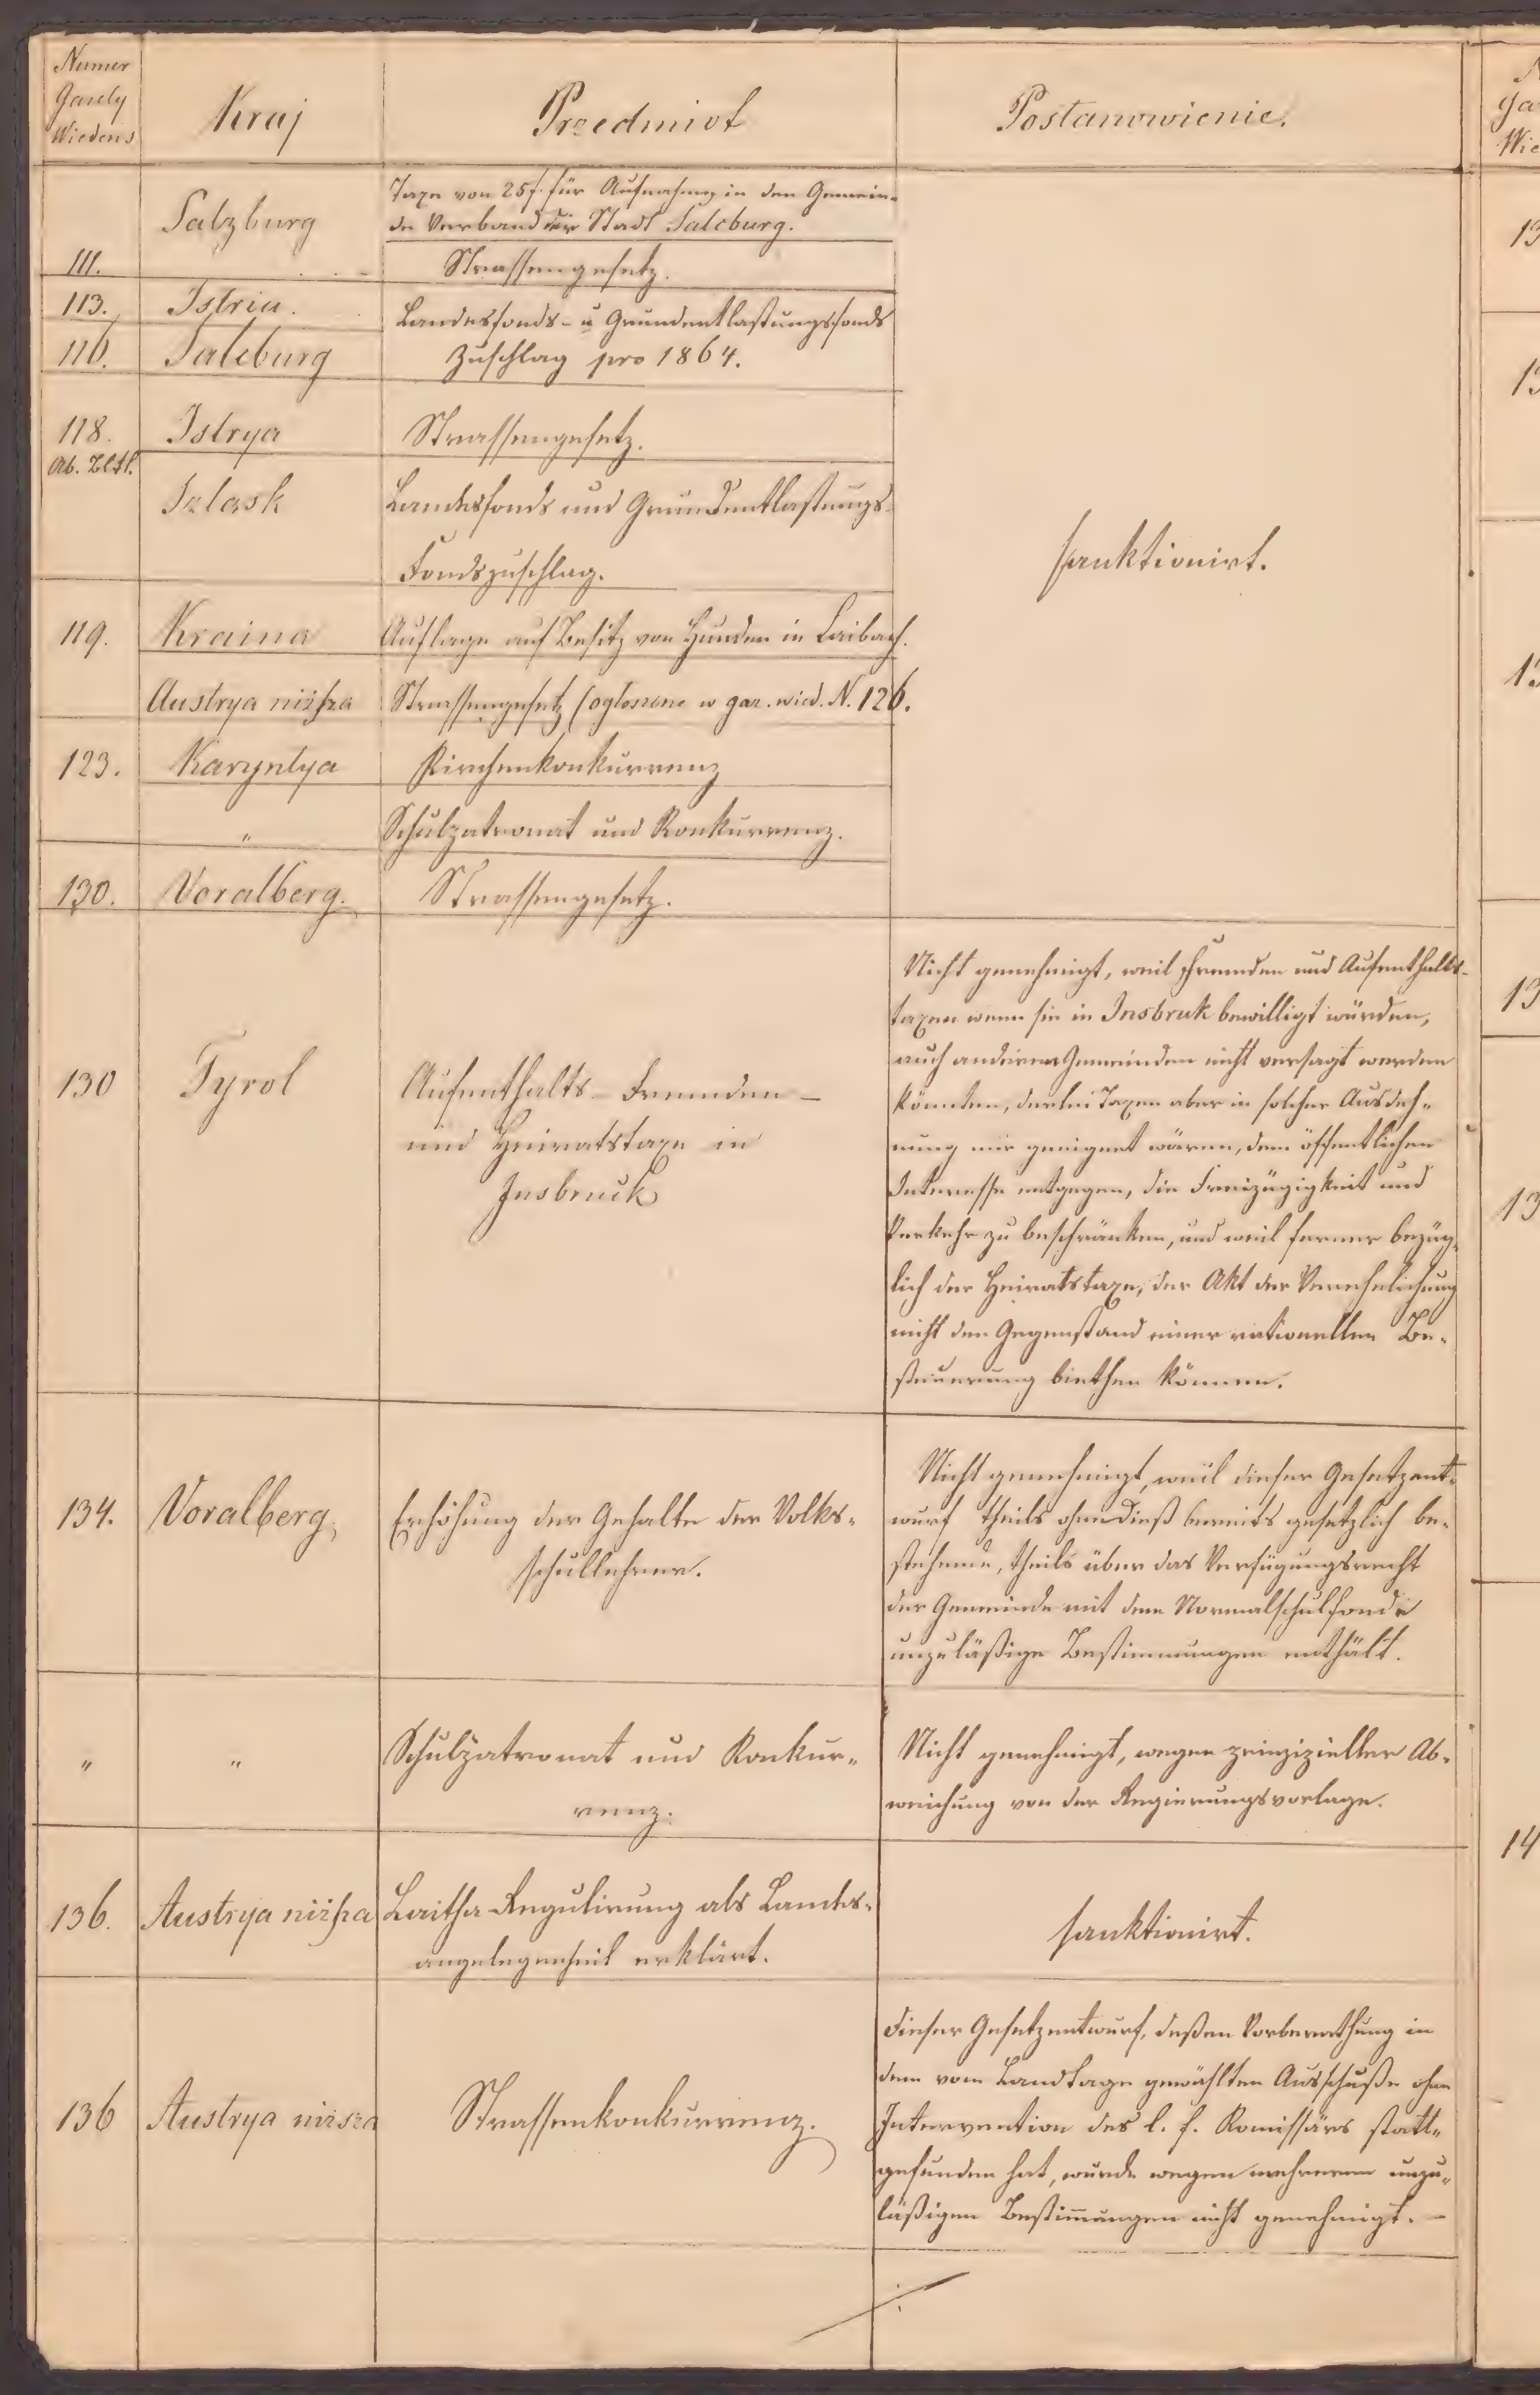 Numer
Gazety
Wiedens
Kraj
Przedmiot
Postanowienie.
Salzburg
Taxe von 25 f. für Aufnahme in den Gemein-
de Verband der Stadt Salcburg.
111.
Strassengesetz.
113.
Istria.
Landesfonds- u Grundentlastungsfonds
116.
Salcburg
Zuschlag pro 1864.
118.
Istrya
Strassengesetz.
Ab. Bltt.
Szlask
Landesfonds und Grundentlastungs-
Fondszuschlag.
sanktionirt.
119.
Kraina
Auflage auf Besitz von Hunden in Laibach.
Austrya niższa
Strassengesetz (ogłoszone w gaz. wied. N. 126.
123.
Karyntya
Kirchenkonkurrenz
"
Schulpatronat und Konkurrenz.
130.
Voralberg.
Strassengesetz.
130
Tyrol
Aufenthalts- Fremden-
und Heiratstaxe in
Insbruck
Nicht genehmigt, weil Fremden und Aufenthalts-
taxen wenn sie in Insbruk bewilligt würden,
auch anderen Gemeinden nicht versagt werden
könnten, derlei Taxen aber in solcher Ausdeh-
nung nur geeignet wären, dem öffentlichen
Interesse entgegen, die Freizügigkeit und
Verkehr zu beschränken, und weil ferner bezüg-
lich der Heiratstaxe, der Akt der Verehelichung
nicht den Gegenstand einer rationellen Be-
steuerung biethen können.
134.
Voralberg,
Erhöhung der Gehalte der Volks-
schullehrer.
Nicht genehmigt, weil dieser Gesetzent-
wurf theils ohnedieß bereits gesetzlich be-
stehende, theils über das Verfügungsrecht
der Gemeinde mit dem Normalschulfonde
unzuläßige Bestimmungen enthält.
"
"
Schulpatronat und Konkur-
renz.
Nicht genehmigt, wegen prinzipieller Ab-
weichung von der Regierungsvorlage.
136.
Austrya niższa
Laitha-Regulirung als Landes-
angelegenheit erklärt.
sanktionirt.
136
Austrya niższa
Strassenkonkurrenz.
Dieser Gesetzentwurf, deßen Vorberathung in
dem vom Landtage gewählten Ausschuße ohne
Intervention des l. f. Komissärs statt-
gefunden hat, wurde wegen mehreren unzu-
läßigen Bestimungen nicht genehmigt. -